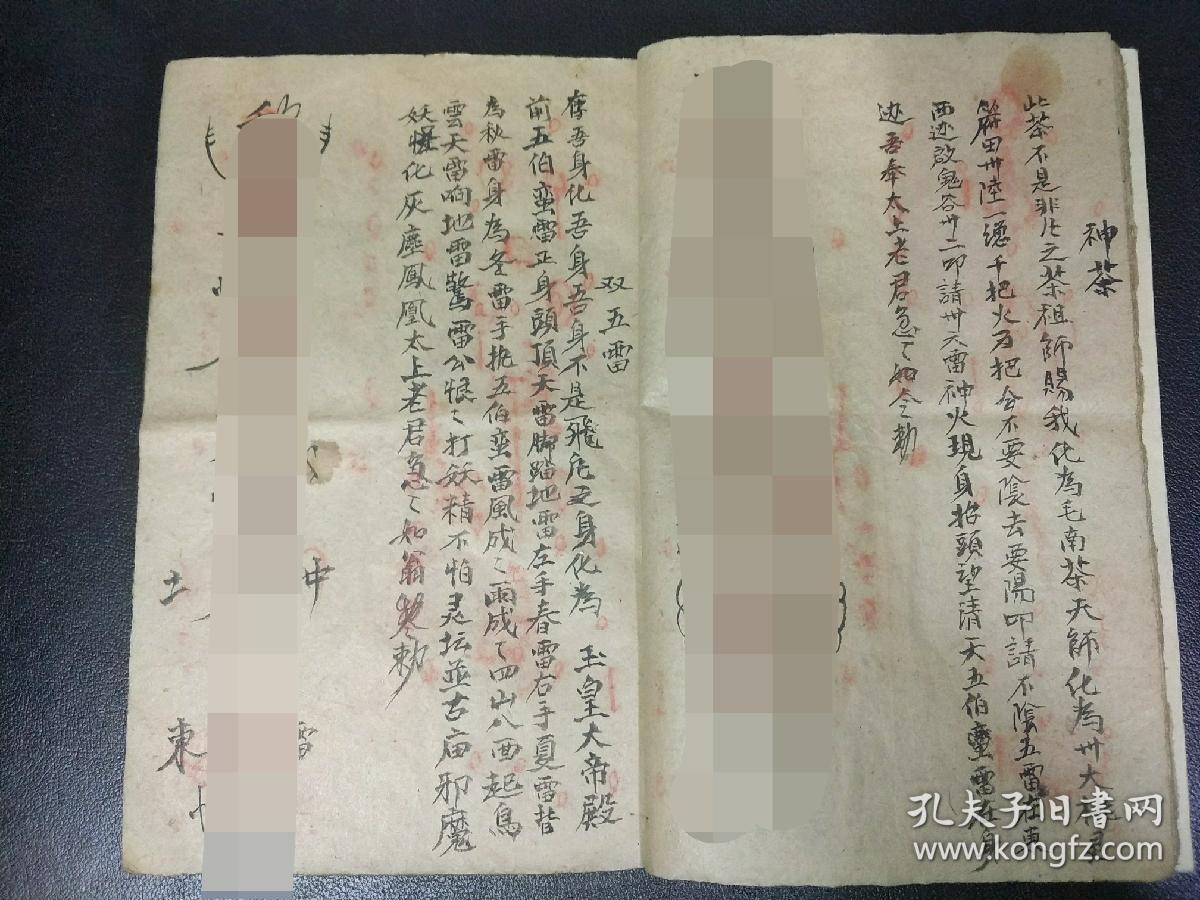 神茶
此茶不是非凡之茶祖師賜我化為毛南茶天師化為卅大
籂田卅陸一總千把火万把令不要陰去要陽叩請不陰五雷在東
西边改鬼谷卅二叩請卅六雷神火現身抬頭望清天五伯蛮雷在身
边吾奉太上老君急〻如令敕
双五雷
吾身化吾身吾身不是飛凡之身化為 玉皇大帝殿
前五伯蛮雷正身頭頂天雷脚踏地雷左手春雷右手夏雷背
為秋雷身為冬雷手执五伯蛮雷風成〻雨成〻四山八西起烏
雲天雷响地雷驚雷公恨〻打妖精不怕灵坛並古庙邪魔
妖怪化灰塵鳳凰太上老君急〻如
敕
中
土
雷
東
七
孔夫子旧书网
www.kongfz.com